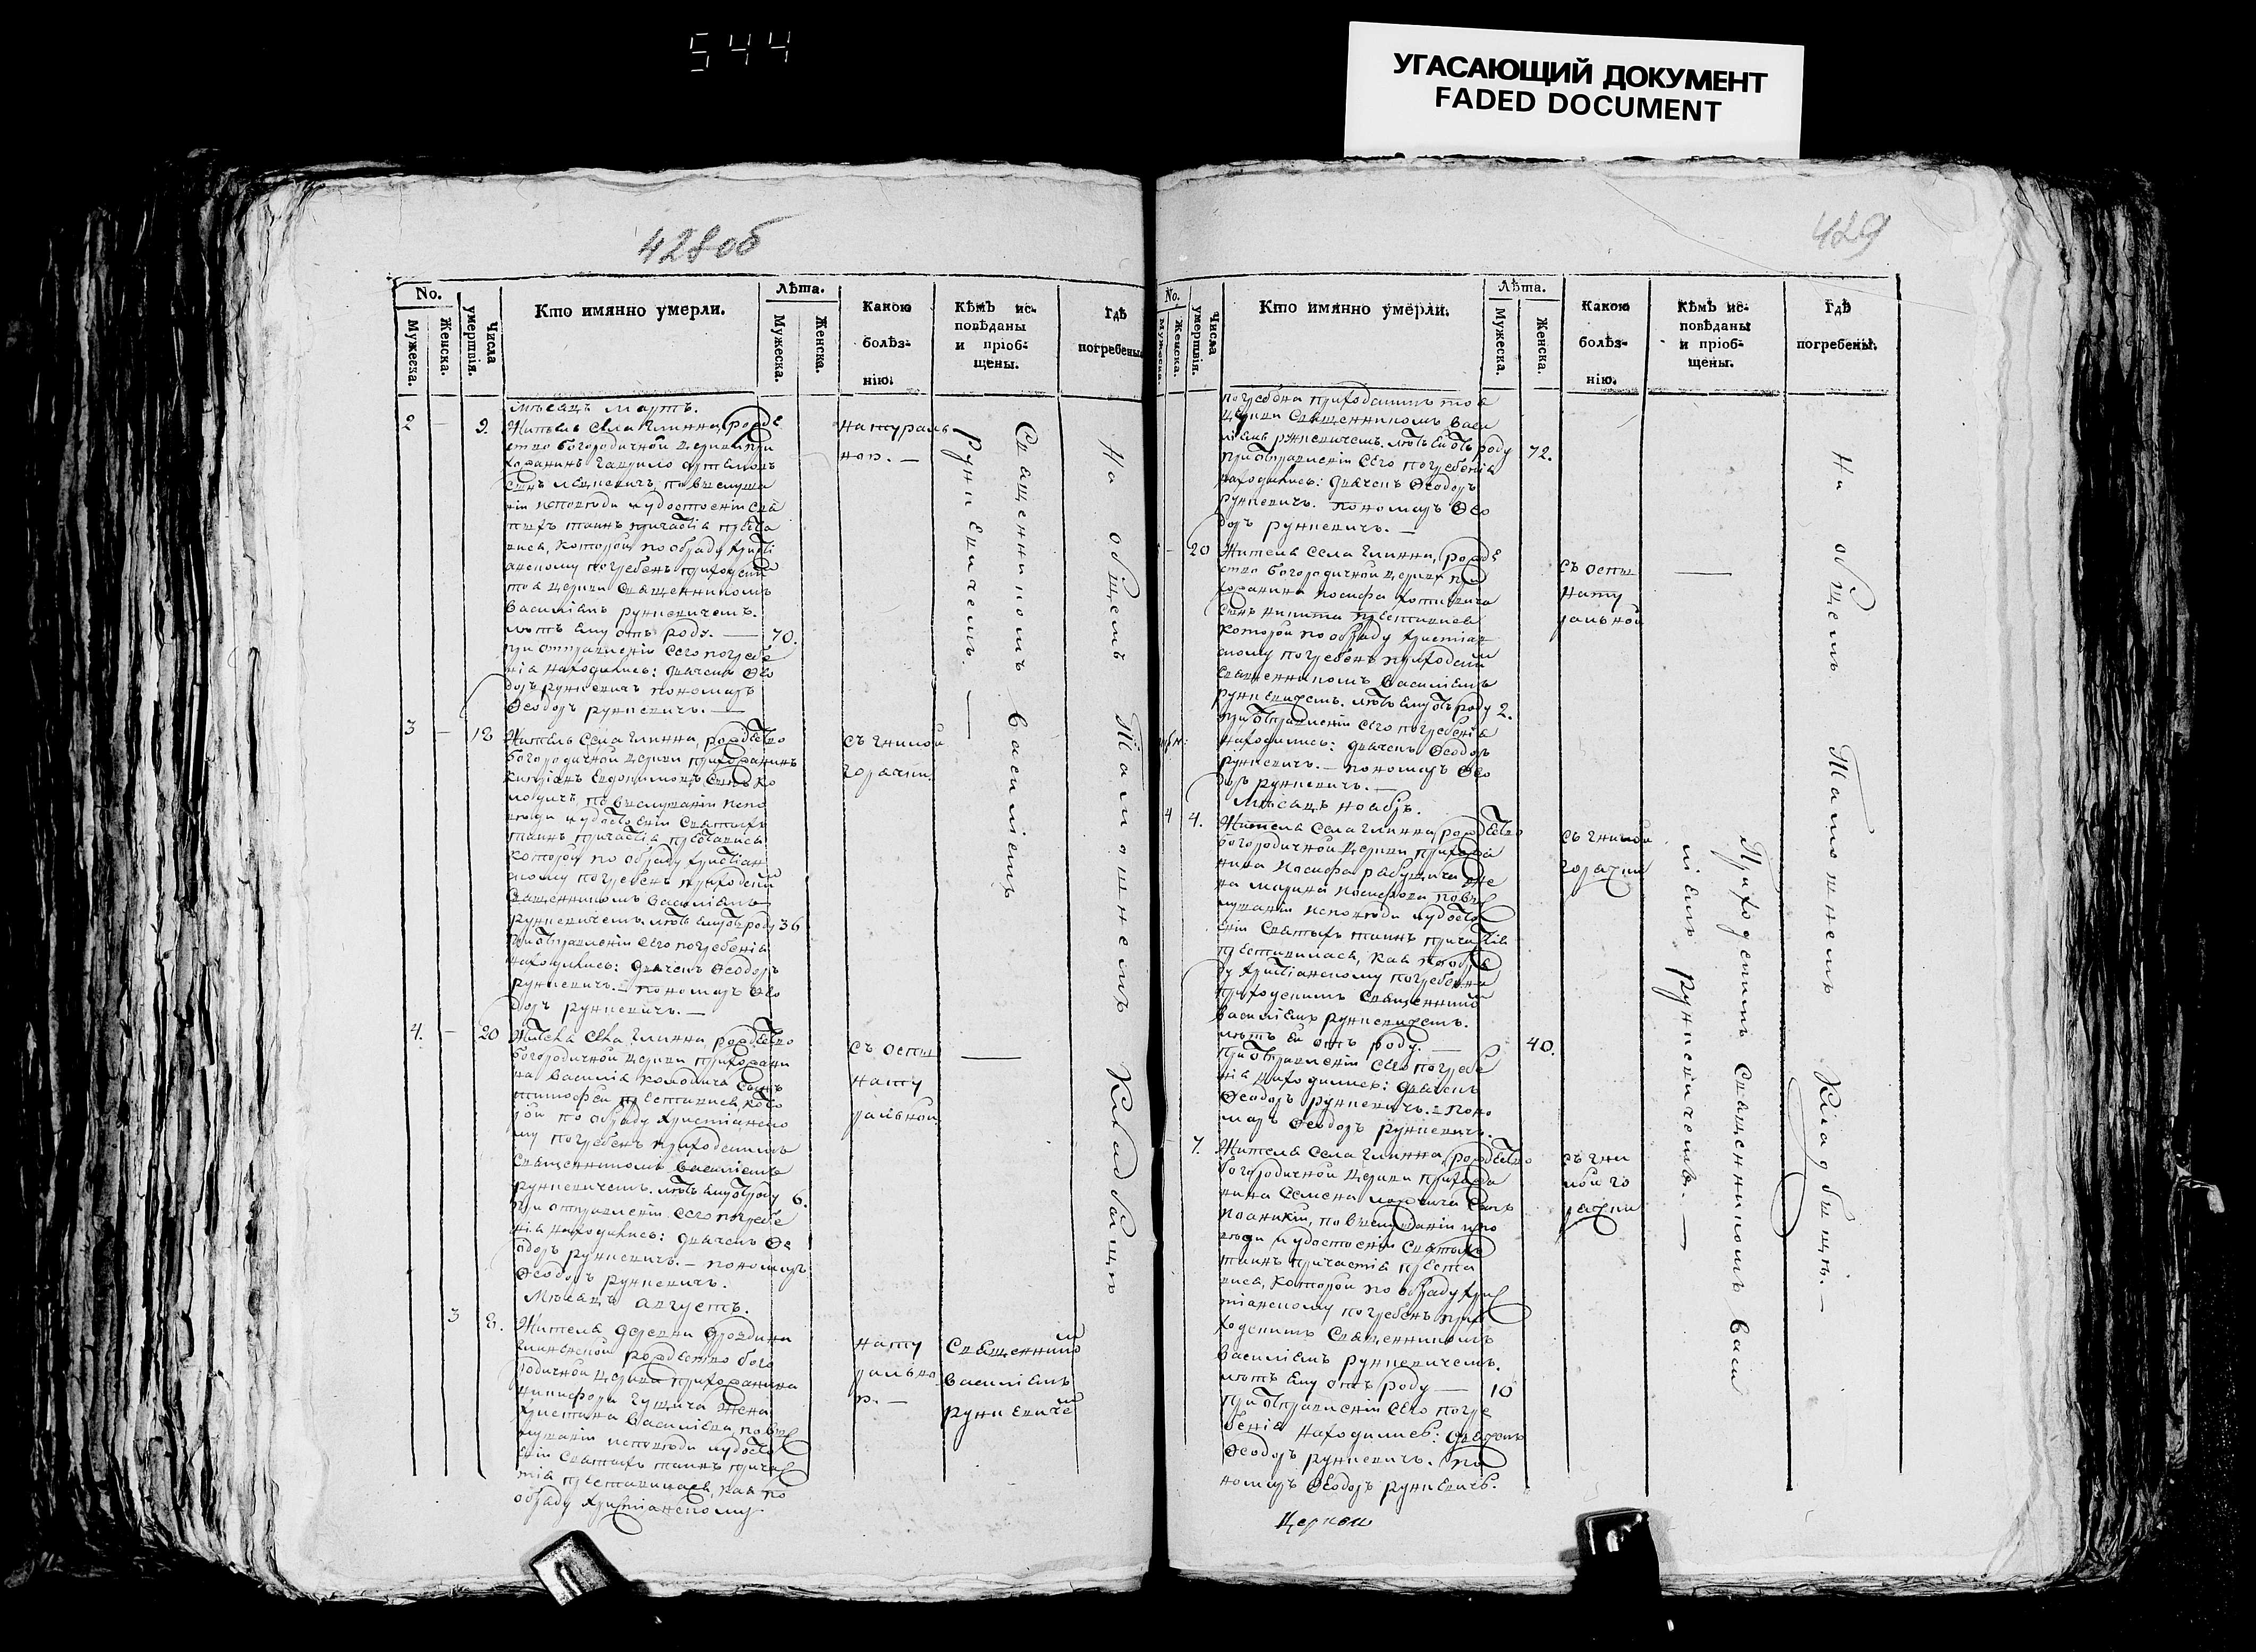 544
УГАСАЮЩИЙ ДОКУМЕНТ
FADED DOCUMENT
428об
No.
Мужеска.
Женска.
Числа умертвія.
Кто имянно умерли.
Лѣта.
Мужеска.
Женска.
Какою болѣз-нію.
Кѣмъ ис-повѣданы и пріоб-щены.
Гдѣ погребены.
Мѣсяцъ Мартъ.
2 — 9.
Житель Села Глинна, рожде
ство Богородичной Церкви при
хожанинъ Гаврило
сынъ по выслуша
ніи исповѣди и удостоеніи Свя
тыхъ таинъ причастія преста
вися, которой по обряду христі
анскому погребенъ приходским
тоя Церкви Священникомъ
Василіемъ Рункевичемъ.
лѣтъ ему отъ роду. — 70.
при отправленіи сего погребе
нія находились: дьячокъ Ѳео
доръ Рункевичъ пономарь
Ѳеодоръ Рункевичъ. —
натураль
ною. —
Священникомъ Василіемъ
Рункевичемъ. —
На общемъ тамошнемъ Кладбищѣ
3 — 18
Житель Села Глинна, рождество
Богородичной Церкви прихожанинъ
сынъ Ко
лодичъ, по выслушаніи испо
вѣди и удостоеніи Святыхъ
таинъ причастія преставися
которой по обряду христіан
скому погребенъ приходским
Священникомъ Василіемъ
Рункевичемъ. лѣтъ ему отъ роду 36
при отправленіи сего погребенія
находились: дьячокъ Ѳеодоръ
Рункевичъ. — пономарь Ѳео
доръ Рункевичъ. —
съ гнилой
горячки.
4. — 20
Жителя Села Глинна рождество
Богородичной Церкви прихожани
на Василія Колодича сынъ
Тимофей преставися, кото
рой по обряду христіанско
му погребенъ приходскимъ
Священникомъ Василіемъ
Рункевичемъ. лѣтъ ему отъ роду 6.
при отправленіи сего погребе
нія находились: дьячокъ Ѳе
одоръ Рункевичъ. — пономарь
Ѳеодоръ Рункевичъ.
съ оспы
нату
ральной
—
Мѣсяцъ Августъ.
3 8.
Жителя деревни
рождество Бого
родичной Церкви прихожанина
Никифора жена
Христина Василіева, по выс
лушаніи исповѣди и удосто
еніи Святыхъ таинъ причас
тія преставилась, коя по
обряду христіанскому
нату
рально
ю. —
Священнико
Василіемъ
Рункевиче
429
No.
Мужеска.
Женска.
Числа умертвія.
Кто имянно умерли.
Лѣта.
Мужеска.
Женска.
Какою болѣз-нію.
Кѣмъ ис-повѣданы и пріоб-щены.
Гдѣ погребены.
погребена приходскимъ тоя
Церкви Священникомъ Васи
ліемъ Рункевичемъ. лѣтъ ей отъ роду 72.
при отправленіи сего погребенія
находились: дьячокъ Ѳеодоръ
Рункевичъ. пономарь Ѳео
доръ Рункевичъ. —
— 20
Жителя Села Глинна, рожде
ство Богородичной Церкви при
хожанина Іосифа
сынъ Никита преставися
которой по обряду христіан
скому погребенъ приходским
Священникомъ Василіемъ
Рункевичемъ. лѣтъ ему отъ роду 2.
при отправленіи сего погребенія
находились: дьячокъ Ѳеодоръ
Рункевичъ. — пономарь Ѳео
доръ Рункевичъ. —
съ оспы
нату
ральной
—
Мѣсяцъ Ноябрь.
4 4.
Жителя Села Глинна, рождество
Богородичной Церкви прихожа
нина Іосифа же
на Марина Іосифова, по выс
лушаніи исповѣди и удосто
еніи Святыхъ таинъ причастія
преставилась, коя по обря
ду христіанскому погребенна
приходскимъ Священнико
Василіемъ Рункевичемъ.
лѣтъ ей отъ роду. — 40.
при отправленіи сего погребе
нія находились: дьячокъ
Ѳеодоръ Рункевичъ. — поно
марь Ѳеодоръ Рункевичъ.
съ гнилой
горячки
Приходскимъ Священникомъ Васи
ліемъ Рункевичемъ. —
На общемъ тамошнемъ Кладбищѣ. —
7.
Жителя Села Глинна, рождество
Богородичной Церкви прихожа
нина Семена сынъ
Іоаникій, по выслушаніи испо
вѣди и удостоеніи Святыхъ
таинъ причастія преста
вися, которой по обряду хрис
тіанскому погребенъ при
ходскимъ Священникомъ
Василіемъ Рункевичемъ.
лѣтъ ему отъ роду — 10
при отправленіи сего погре
бенія находились: дьячокъ
Ѳеодоръ Рункевичъ. по
номарь Ѳеодоръ Рункевичъ.
съ гни
лой го
рячки
Церкви